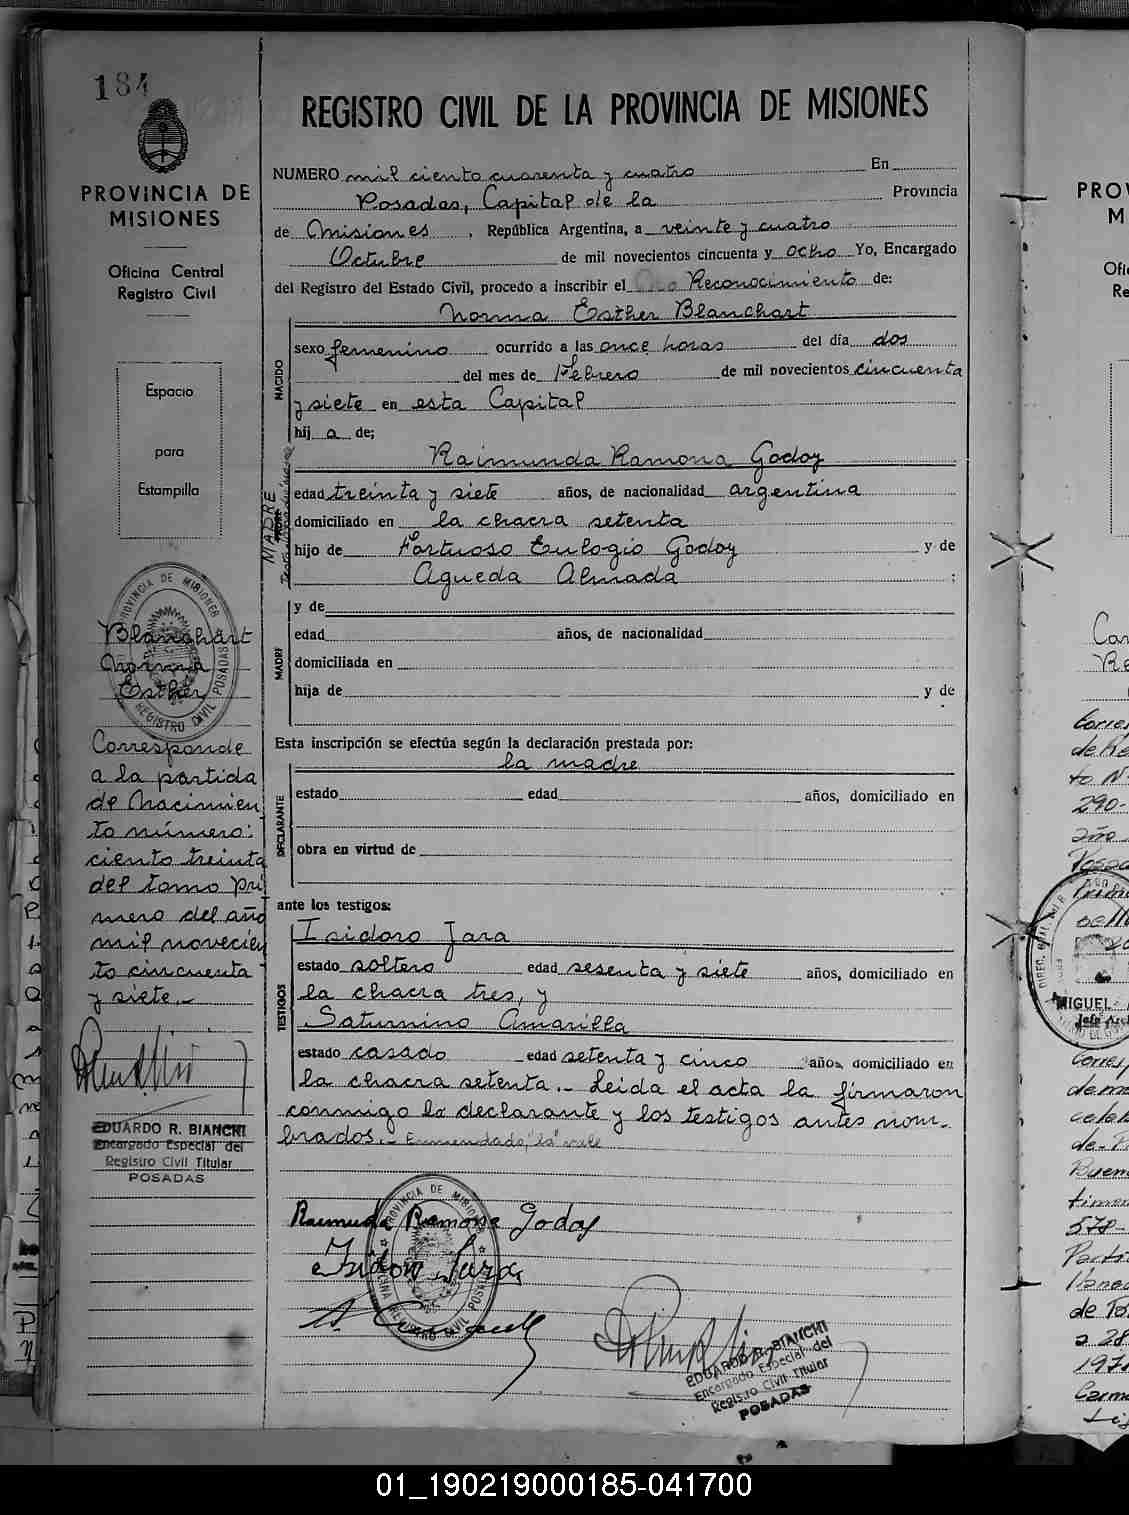 184
PROVINCIA DE
MISIONES
Oficina Central
Registro Civil
Espacio
para
Estampilla
PROVINCIA DE MISIONES
REGISTRO CIVIL POSADAS
Blanchart
Norma
Esther
Corresponde
a la partida
de Nacimien
to número:
ciento treinta
del tomo pri
mero del año
mil novecien
to cincuenta
y siete.-
EDUARDO R. BIANCHI
Encargado Especial del
Registro Civil Titular
POSADAS
REGISTRO CIVIL DE LA PROVINCIA DE MISIONES
NUMERO mil ciento cuarenta y cuatro En
Posadas, Capital de la Provincia
de Misiones, República Argentina, a veinte y cuatro
Octubre de mil novecientos cincuenta y ocho Yo, Encargado
del Registro del Estado Civil, procedo a inscribir el Reconocimiento de:
Norma Esther Blanchart
NACIDO
sexo femenino ocurrido a las once horas del día dos
del mes de Febrero de mil novecientos cincuenta
y siete en esta Capital
hij a de;
Raimunda Ramona Godoy
MADRE
edad treinta y siete años, de nacionalidad argentina
domiciliado en la chacra setenta
hijo de Fortuoso Eulogio Godoy y de
Agueda Almada ;
y de
edad años, de nacionalidad
MADRE
domiciliada en
hija de y de
Esta inscripción se efectúa según la declaración prestada por:
la madre
DECLARANTE
estado edad años, domiciliado en
obra en virtud de
ante los testigos:
Isidoro Jara
estado soltero edad sesenta y siete años, domiciliado en
la chacra tres, y
TESTIGOS
Saturnino Amarilla
estado casado edad setenta y cinco años, domiciliado en
la chacra setenta.- Leida el acta la firmaron
conmigo la declarante y los testigos antes nom-
brados.- Enmendado, "la" vale
Raimuda Ramona Godoy
Isidoro Jara
PROVINCIA DE MISIONES
REGISTRO CIVIL POSADAS
EDUARDO R. BIANCHI
Encargado Especial del
Registro Civil Titular
POSADAS
PROV
M
Ofi
Re
290-
año
MIGUEL
Buen
578-
de Po
a 28
197
01_190219000185-041700